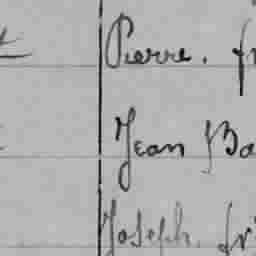 Pierre. fr
Jean Ba
Joseph. fri